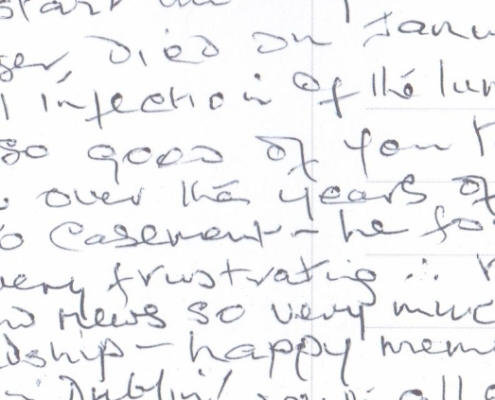 start
ger, died on Janu
l infection of the lun
so good of you t
over the years of
to Casement - he fo
very frustrating ∴
news so very muc
dship - happy mem
in Dublin!